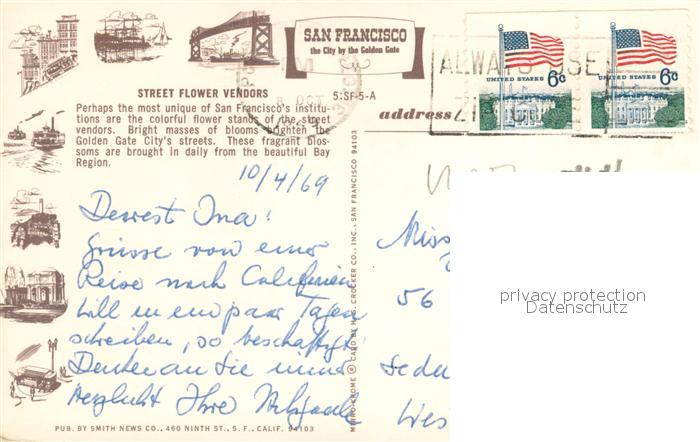 SAN FRANCISCO
the City by the Golden Gate
STREET FLOWER VENDORS
5:SF-5-A
Perhaps the most unique of San Francisco's institu-
tions are the colorful flower stands of the street
vendors. Bright masses of blooms brighten the
Golden Gate City's streets. These fragrant blos-
soms are brought in daily from the beautiful Bay
Region.
address
ALWAYS USE
ZIP
OCT
UNITED STATES 6c
UNITED STATES 6c
10/4/69
Dearest Ina!
Grüsse von einer
Reise nach Californien
Will in ein paar Tagen
schreiben, so beschäftigt
Denke an Sie immer
herzlichst Ihre
Miss
56
Sedu
Wes
privacy protection
Datenschutz
MIRRO-KROME ® CARD BY H.S. CROCKER CO., INC., SAN FRANCISCO 94103
PUB. BY SMITH NEWS CO., 460 NINTH ST., S. F., CALIF. 94103